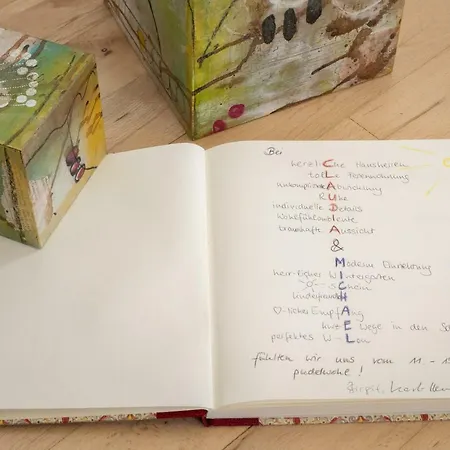 Bei
herzliche Hausherren
tolle Ferienwohnung
Ruhe
individuelle Details
Wohlfühlambiente
traumhafte Aussicht
&
Moderne Einrichtung
herrlicher Wintergarten
kinderfreundlich
♡-licher Empfang
kurze Wege in den
perfektes W-Lan
fühlten wir uns vom 11 - 
pudelwohl!